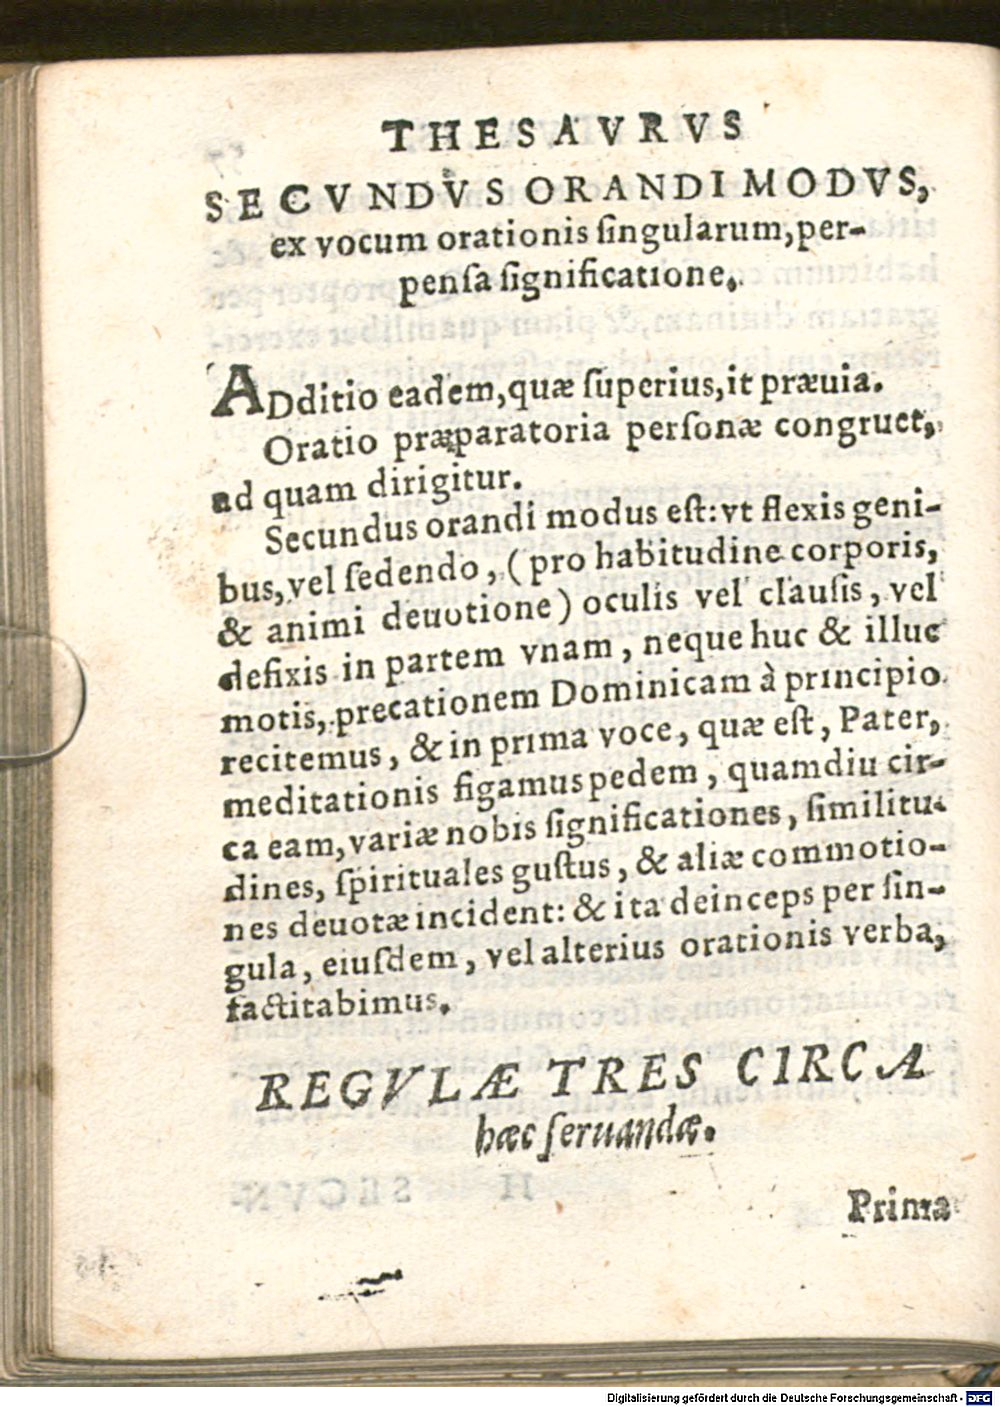 THESAVRVS
SECVNDVS ORANDI MODVS,
ex vocum orationis ſingularum, per-
penſa ſignificatione.
ADditio eadem, quæ ſuperius, it præuia.
Oratio præparatoria perſonæ congruet,
ad quam dirigitur.
Secundus orandi modus eſt: vt flexis geni-
bus, vel ſedendo, (pro habitudine corporis,
& animi deuotione) oculis vel clauſis, vel
defixis in partem vnam, neque huc & illuc
motis, precationem Dominicam à principio
recitemus, & in prima voce, quæ eſt, Pater,
meditationis figamus pedem, quamdiu cir-
ca eam, variæ nobis ſignificationes, ſimilitu-
dines, ſpirituales guſtus, & aliæ commotio-
nes deuotæ incident: & ita deinceps per ſin-
gula, eiuſdem, vel alterius orationis verba,
factitabimus.
REGVLÆ TRES CIRCA
hæc ſeruandæ.
Prima
Digitalisierung gefördert durch die Deutsche Forschungsgemeinschaft - DFG